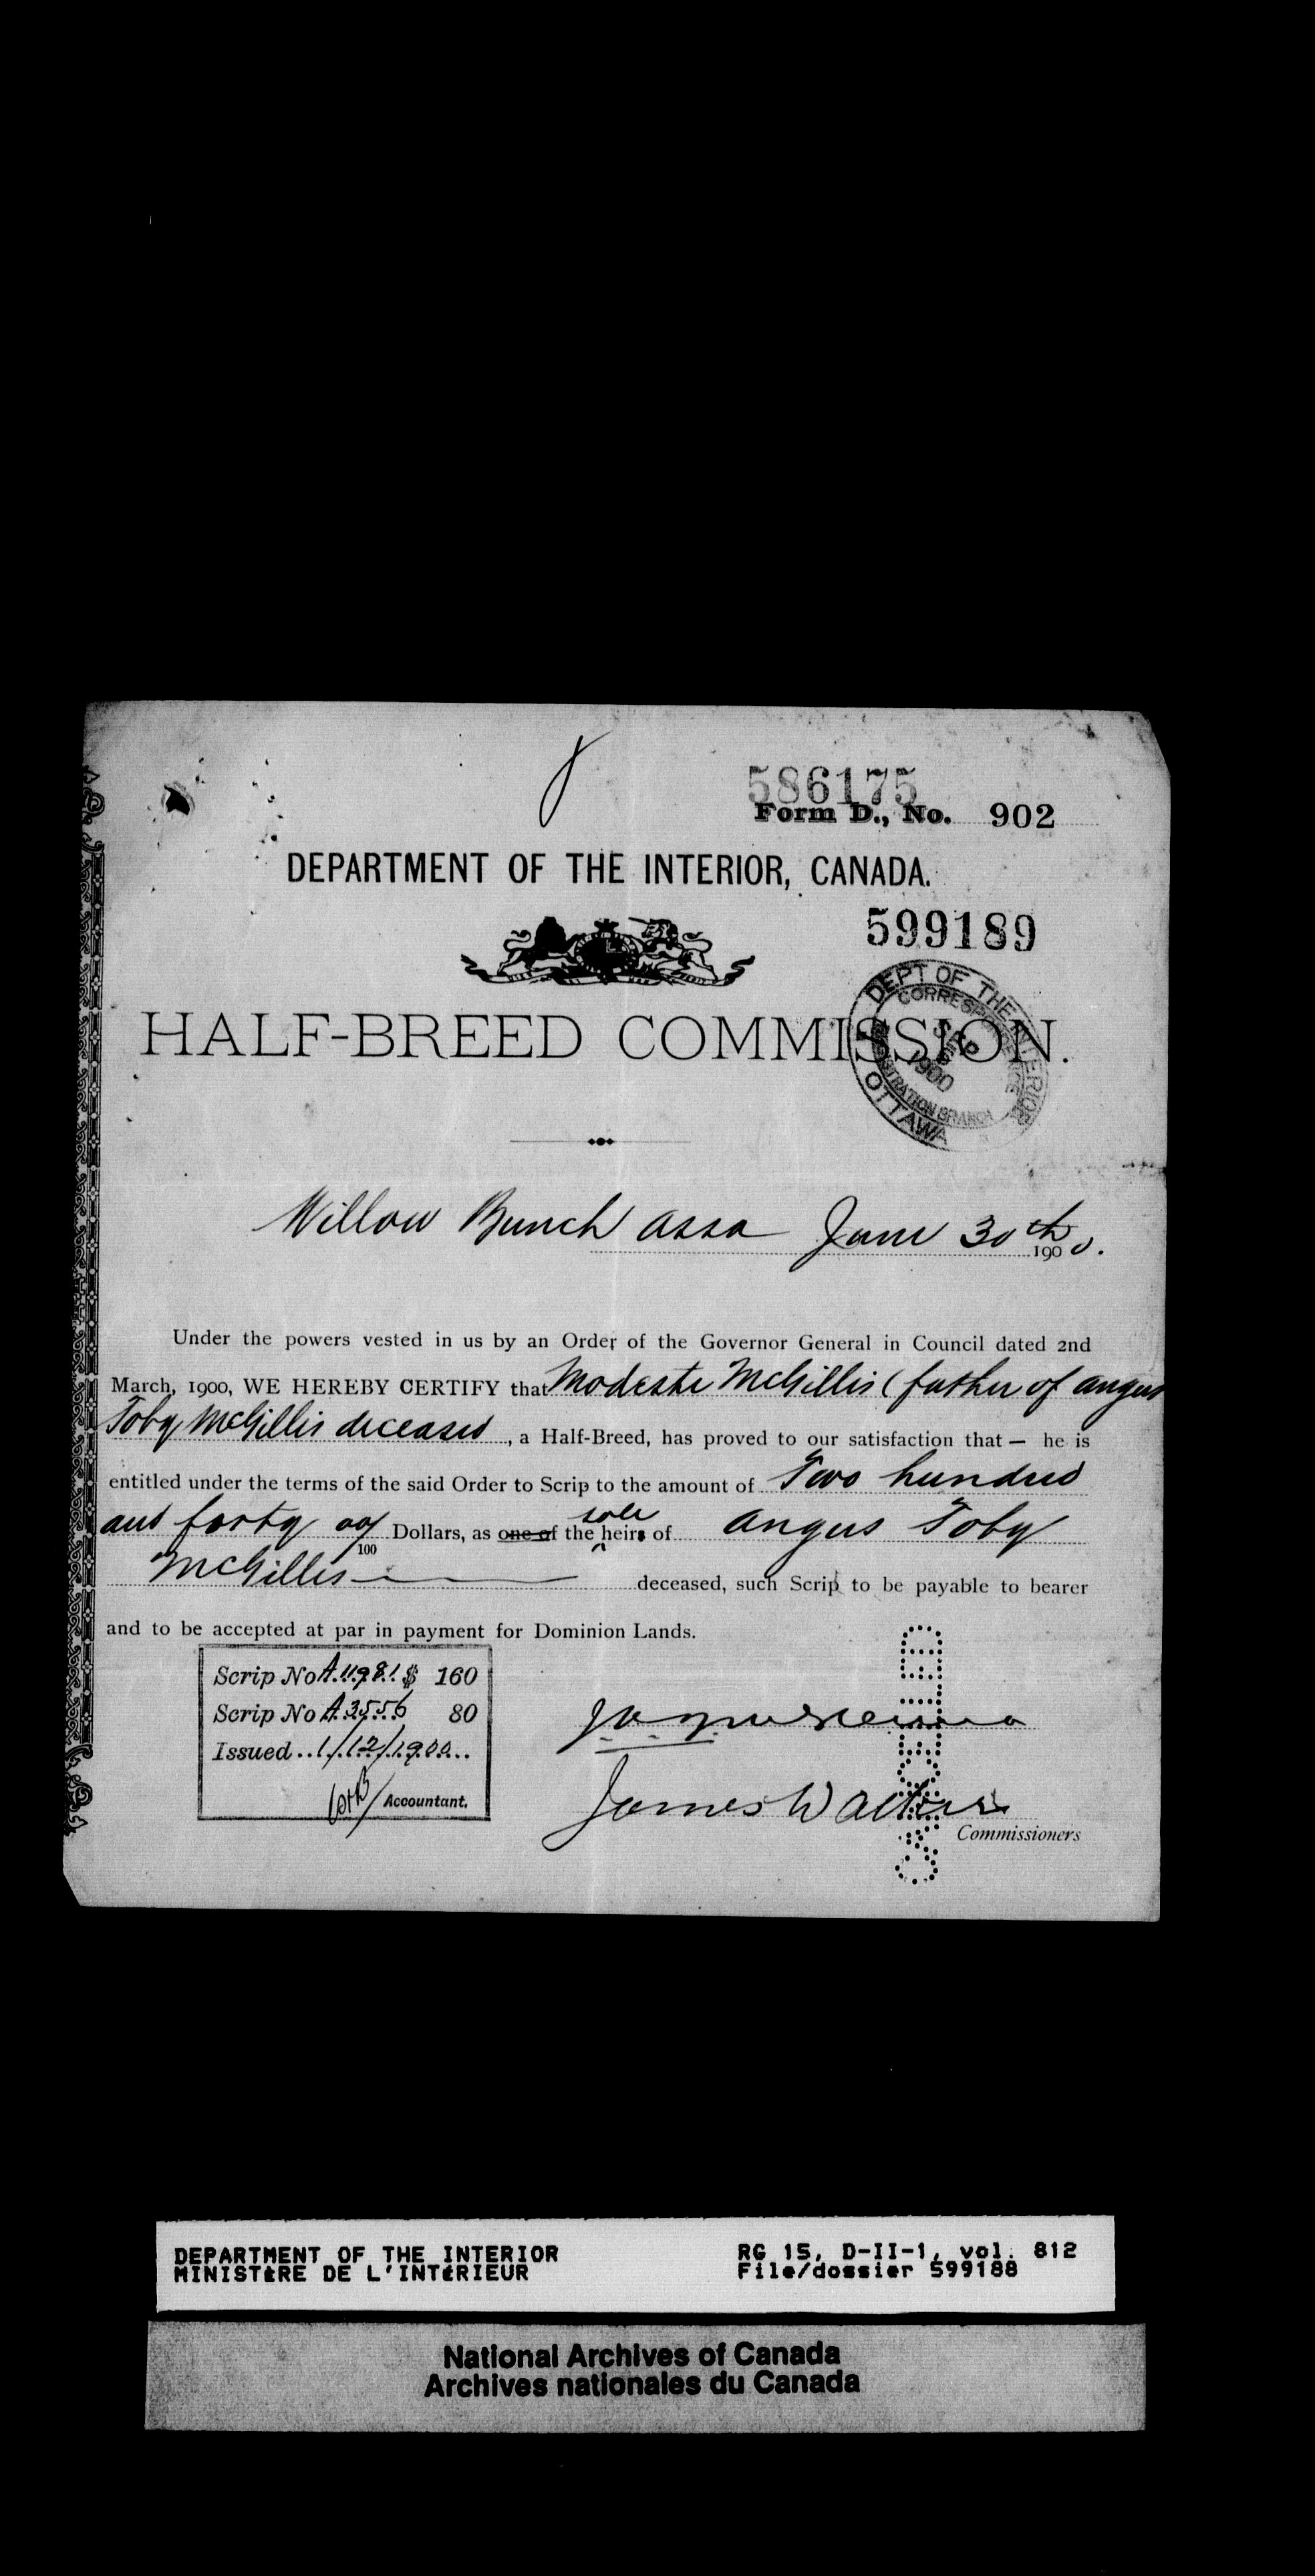 586175
Form D., No. 902
DEPARTMENT OF THE INTERIOR, CANADA.
599189
DEPT OF THE INTERIOR
OTTAWA
1900
HALF-BREED COMMISSION.
Willow Bunch Assa June 30th 1900.
Under the powers vested in us by an Order of the Governor General in Council dated 2nd
March, 1900, WE HEREBY CERTIFY that Modeste McGillis (father of Angus
Toby McGillis deceased, a Half-Breed, has proved to our satisfaction that — he is
entitled under the terms of the said Order to Scrip to the amount of Two hundred
and forty 00/100 Dollars, as one of the sole heirs of Angus Toby
McGillis deceased, such Scrip to be payable to bearer
and to be accepted at par in payment for Dominion Lands.
Scrip No A.11981 $ 160
Scrip No A.3556 80
Issued 1/12/1900
Accountant.
James Walker
Commissioners
DEPARTMENT OF THE INTERIOR
MINISTÈRE DE L'INTÉRIEUR
RG 15, D-II-1, vol. 812
File/dossier 599188
National Archives of Canada
Archives nationales du Canada